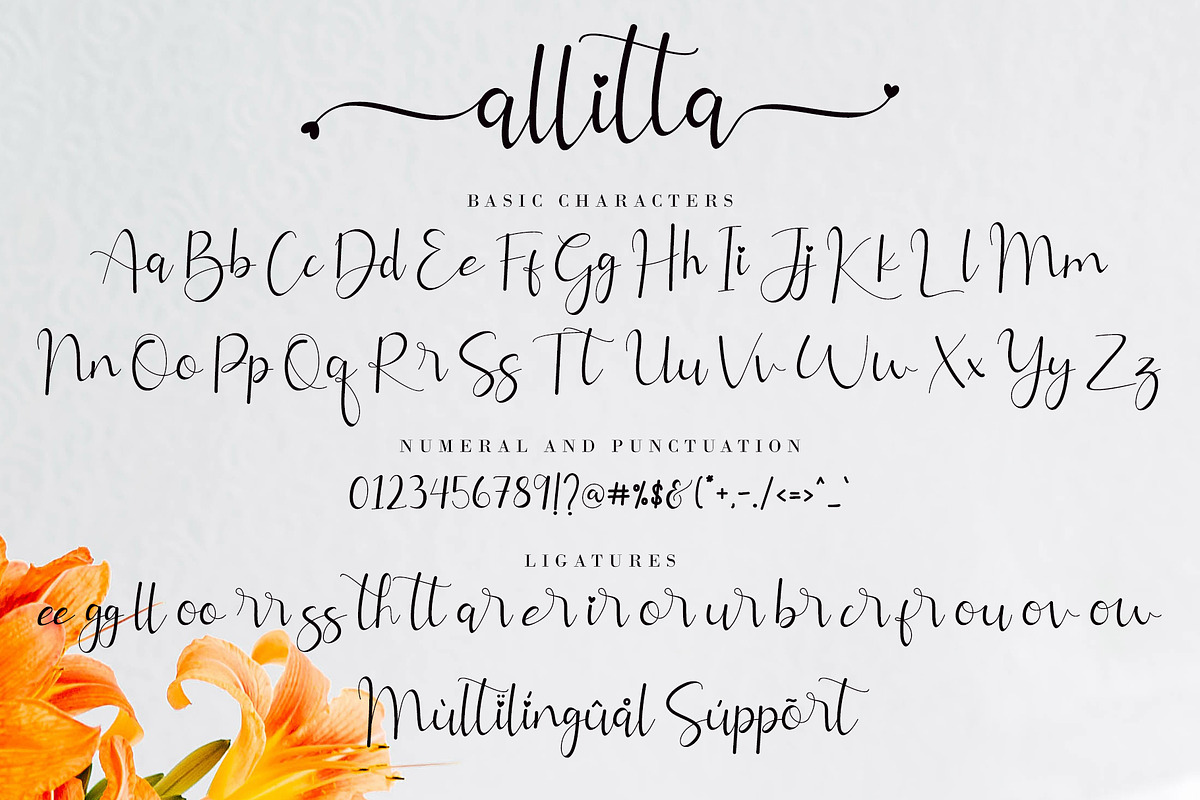 allitta
BASIC CHARACTERS
Aa Bb Cc Dd Ee Ff Gg Hh Ii Jj Kk Ll Mm
Nn Oo Pp Qq Rr Ss Tt Uu Vv Ww Xx Yy Zz
NUMERAL AND PUNCTUATION
0123456789!?@#%$&(*+,-./<=>^_`
LIGATURES
ee gg ll oo rr ss th tt ar er ir or ur br cr fr ou ov ow
Mùltïlíngûål Súppõrt